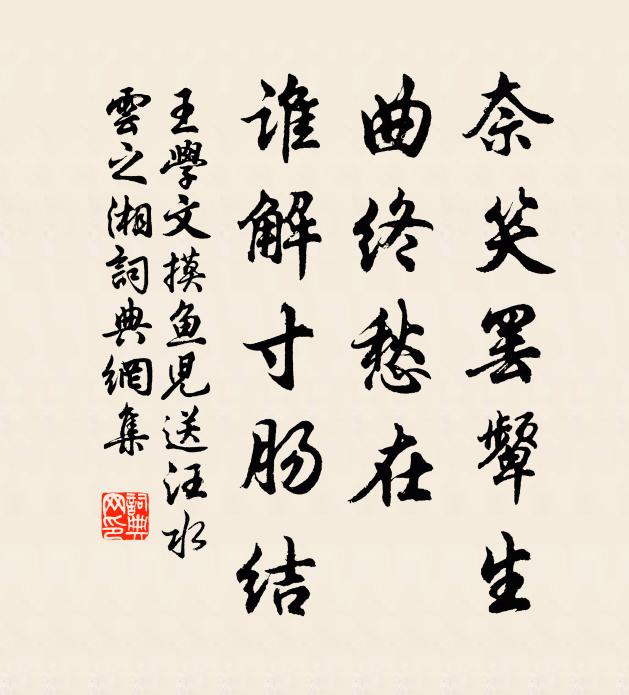 奈笑罢颦生
曲终愁在
谁解寸肠结
王學文摸鱼児送汪水
雲之湘詞典網集
詞典网印